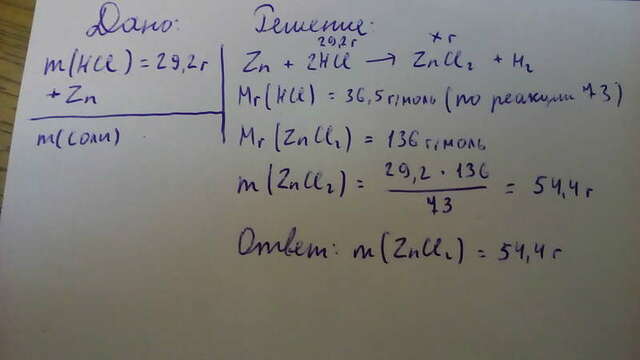 Дано:
m(HCl) = 29,2г
+ Zn
m(соли)
Решение:
29,2г xг
Zn + 2HCl → ZnCl₂ + H₂
Mr(HCl) = 36,5 г/моль (по реакции 73)
Mr(ZnCl₂) = 136 г/моль
m(ZnCl₂) = 29,2 · 136 / 73 = 54,4 г
Ответ: m(ZnCl₂) = 54,4 г